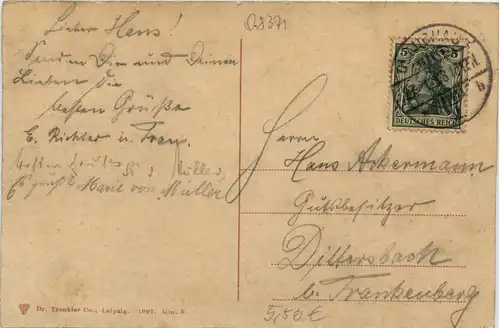 Lieber Hans!
Senden Dir und Deinen
Lieben die
besten Grüße
E. Richter u. Frau.
Marie von Müller
Q8371
5 5
DEUTSCHES REICH
Herrn
Hans Ackermann
Gutsbesitzer
Dittersbach
b. Frankenberg
5,50€
Dr. Trenkler Co., Leipzig. 1907.